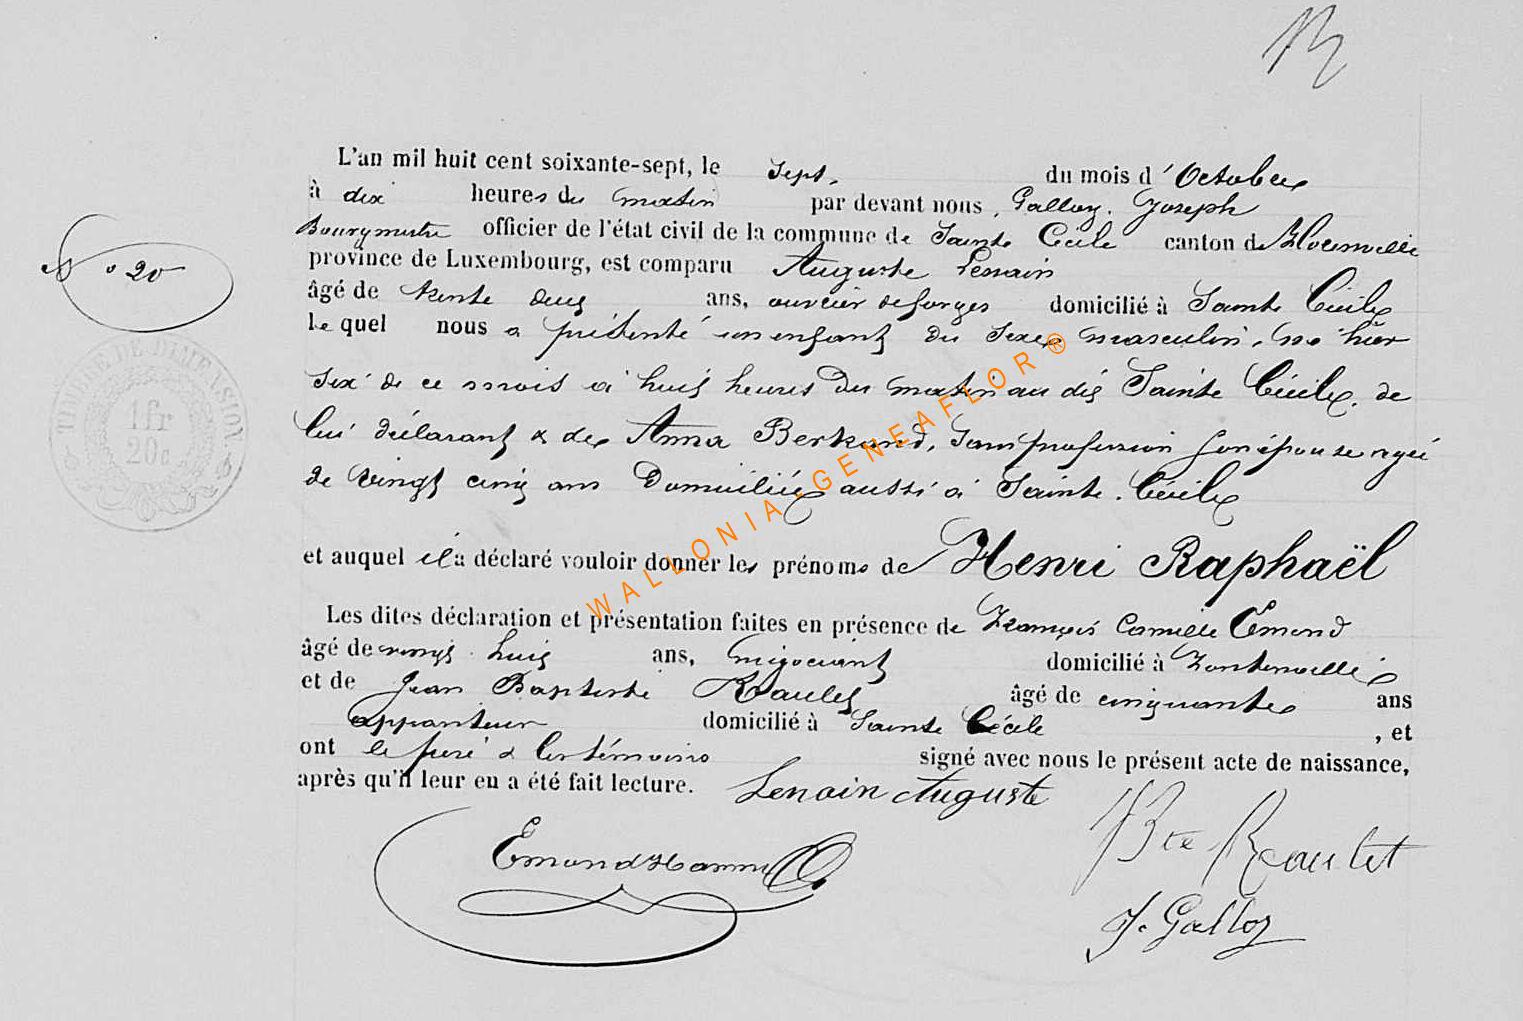 L'an mil huit cent soixante-sept, le sept, du mois d'Octobre
à dix heures du matin par devant nous, Galloy. Joseph
Bourgmestre officier de l'état civil de la commune de Sainte Cécile canton de Florenville
province de Luxembourg, est comparu Auguste Lenoin
N° 20
âgé de trente deux ans, ouvrier de forges domicilié à Sainte Cécile
lequel nous a présenté un enfant du sexe masculin, né hier
six de ce mois à huit heures du matin au dit Sainte Cécile, de
lui déclarant & de Anna Bertrand, sans profession son épouse agée
de vingt cinq ans domiciliée aussi à Sainte. Cécile
TIMBRE DE DIMENSION
1 fr
20 c
et auquel il a déclaré vouloir donner les prénoms de Henri Raphaël
Les dites déclaration et présentation faites en présence de François Camille Emond
âgé de vingt huit ans, négociant domicilié à Fontenoille
et de Jean Baptiste Raulet âgé de cinquante ans
appariteur domicilié à Sainte Cécile, et
ont le père & les témoins signé avec nous le présent acte de naissance,
après qu'il leur en a été fait lecture. Lenoin Auguste
Emond
JBte Raulet
J. Galloy
WALLONIA-GENEAFLOR®